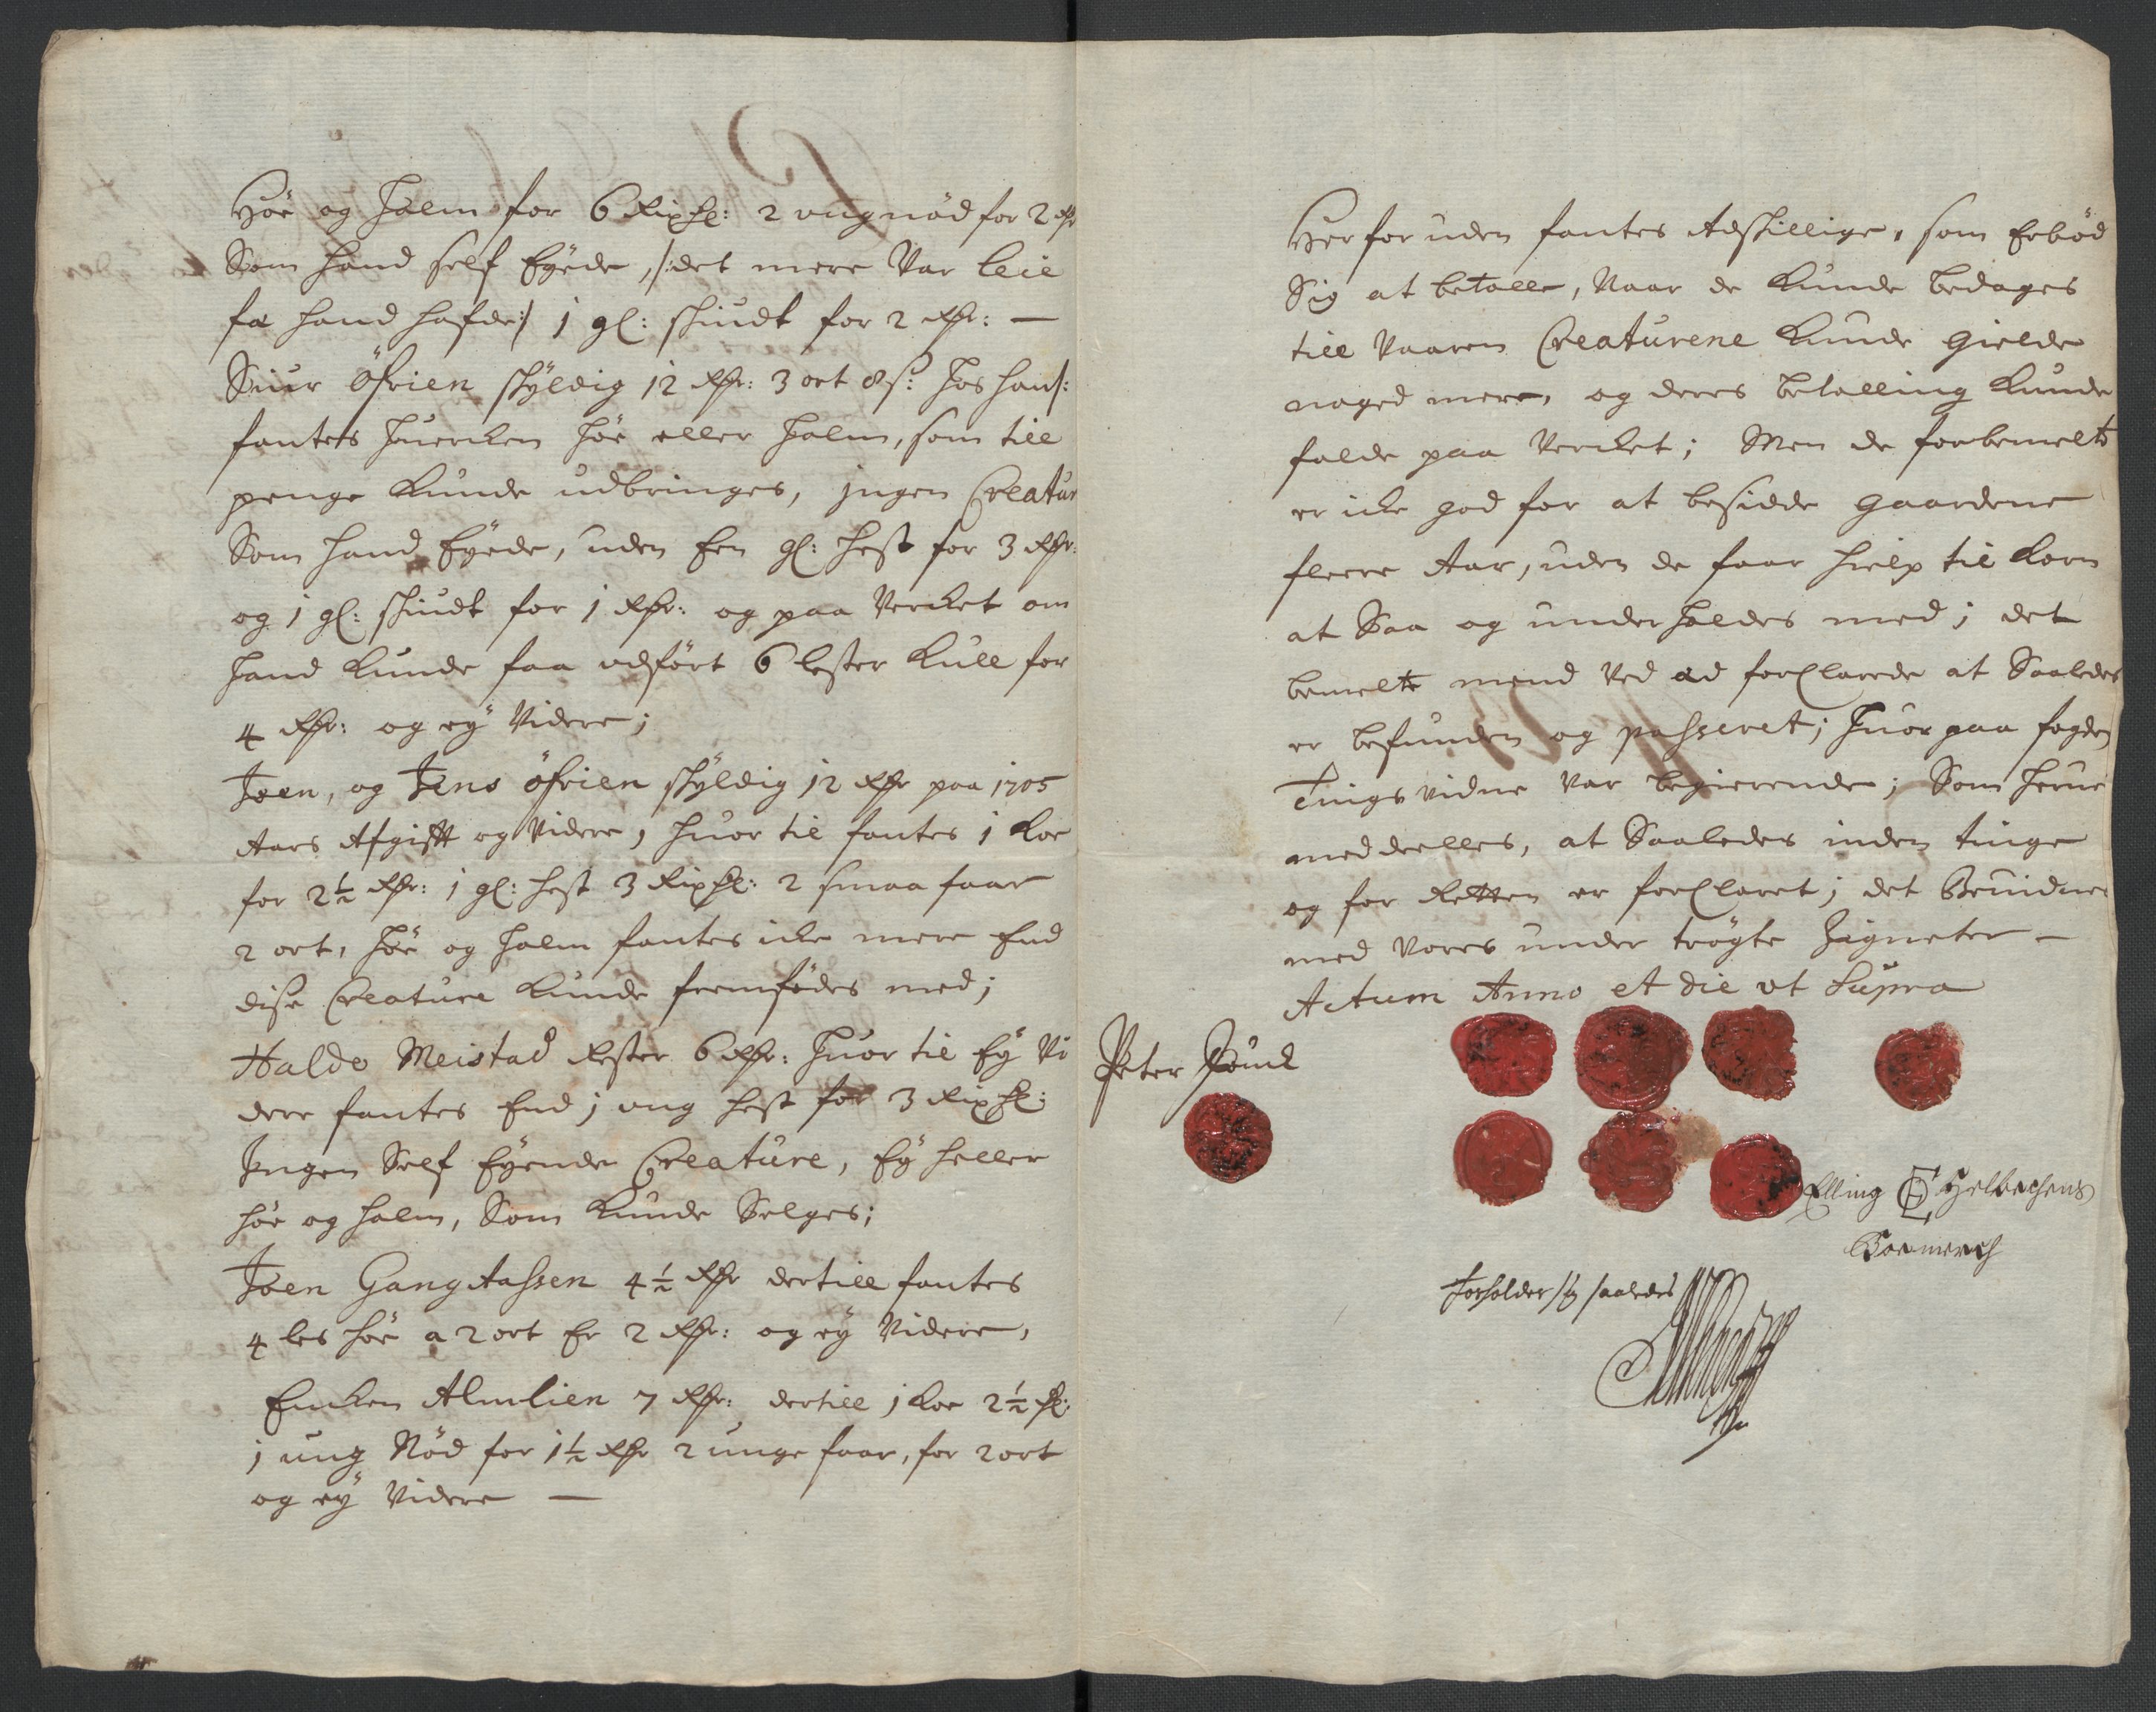 Höe og Halm for 6 Rixdl: 2 ungnöd for 2 Rdr
Som hand self Eyede, /: det mere Var leie
fæ hand hafde :/ 1 gl: skiudt for 2 Rdr: —
Siur Öfrien skyldig 12 Rdr: 3 ort 8 s: hos hans:
fantes huercken höe eller halm, som till
penge kunde udbringes, jngen Creatur
Som hand Eyede, uden Een gl: hest for 3 Rdr:
og 1 gl: skiudt for 1 Rdr: og paa Vercket om
hand kunde faa udfört 6 lester kull for
4 Rdr: og ey Videre;
Joen, og Jens öfrien skyldig 12 Rdr paa 1705
Aars Afgifft og Videre, huor til fantes 1 koe
for 2½ Rdr: 1 gl: hest 3 Rixdl: 2 smaa faar
2 ort, höe og halm fantes icke mere End
dise Creature kunde fremfödes med;
Haldo Meistad Rester 6 Rdr: huor til Ey Vi
dere fantes End 1 ung hest for 3 Rixdl:
Jngen Self Eyende Creature, Ey heller
höe og halm, Som kunde Selges;
Joen Gangstassen 4½ Rdr dertill fantes
4 les höe a 2 ort Er 2 Rdr: og ey Videre,
Encken Almlien 7 Rdr: dertill 1 koe 2½ Rdl:
1 ung Nöd for 1½ Rdr 2 unge faar, for 2 ort
og ey Videre —
Her foruden fantes Adskillige, som Erböd
Sig at betalle, Naar de kunde bedages
till Vaaren Creaturene kunde gielde
noged mere, og deres betalling kunde
falde paa Vercket; Men de forbemelte
er icke god for at besidde gaardene
fleere Aar, uden de faar hielp til korn
at Saa og underholdes med; det
bemelte mend Ved æd forclarede at Saaledes
er befunden og passeret; huor paa fogden
Tingsvidne Var begierende; Som herue
meddeelles, at Saaledes inden tinge
og for Retten er forclaret; det Bevidner
med Vores under trögte Zigneter —
Actum Anno et die ut Supra
Peter
Elling
forholder sig saaledes